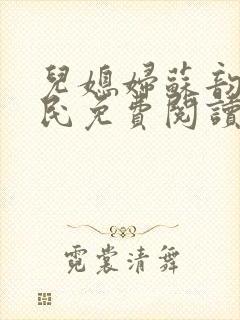 兒媳婦蘇韵
民免費閱讀
霓裳清舞